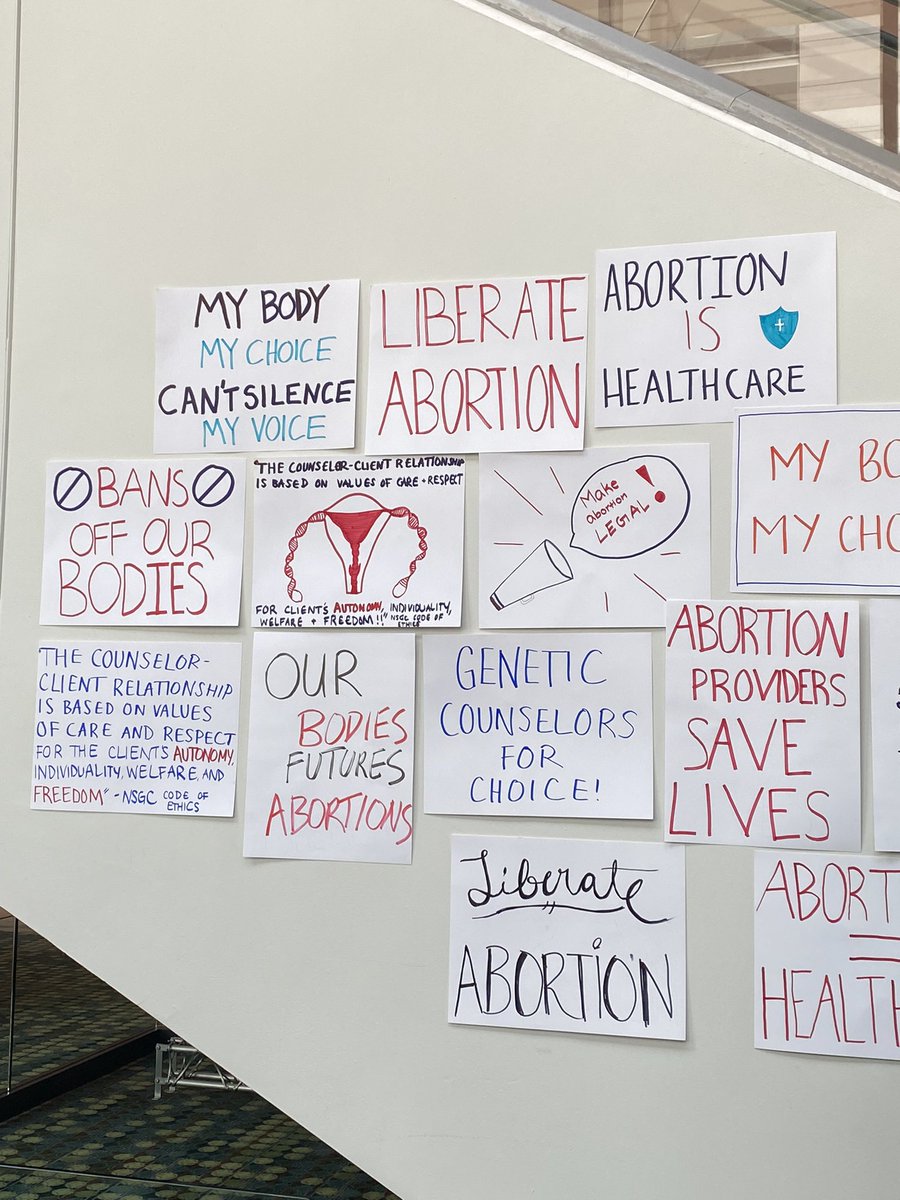 MY BODY
MY CHOICE
CAN'T SILENCE
MY VOICE
LIBERATE
ABORTION
ABORTION
IS
HEALTHCARE
BANS
OFF OUR
BODIES
"THE COUNSELOR-CLIENT RELATIONSHIP
IS BASED ON VALUES OF CARE + RESPECT
FOR CLIENT'S AUTONOMY, INDIVIDUALITY,
WELFARE + FREEDOM!!" NSGC CODE OF
ETHICS
Make
abortion
LEGAL!
MY BO
MY CHO
"THE COUNSELOR-
CLIENT RELATIONSHIP
IS BASED ON VALUES
OF CARE AND RESPECT
FOR THE CLIENT'S AUTONOMY,
INDIVIDUALITY, WELFARE, AND
FREEDOM" - NSGC CODE OF
ETHICS
OUR
BODIES
FUTURES
ABORTIONS
GENETIC
COUNSELORS
FOR
CHOICE!
ABORTION
PROVIDERS
SAVE
LIVES
Liberate
ABORTION
ABORT
=
HEALTH